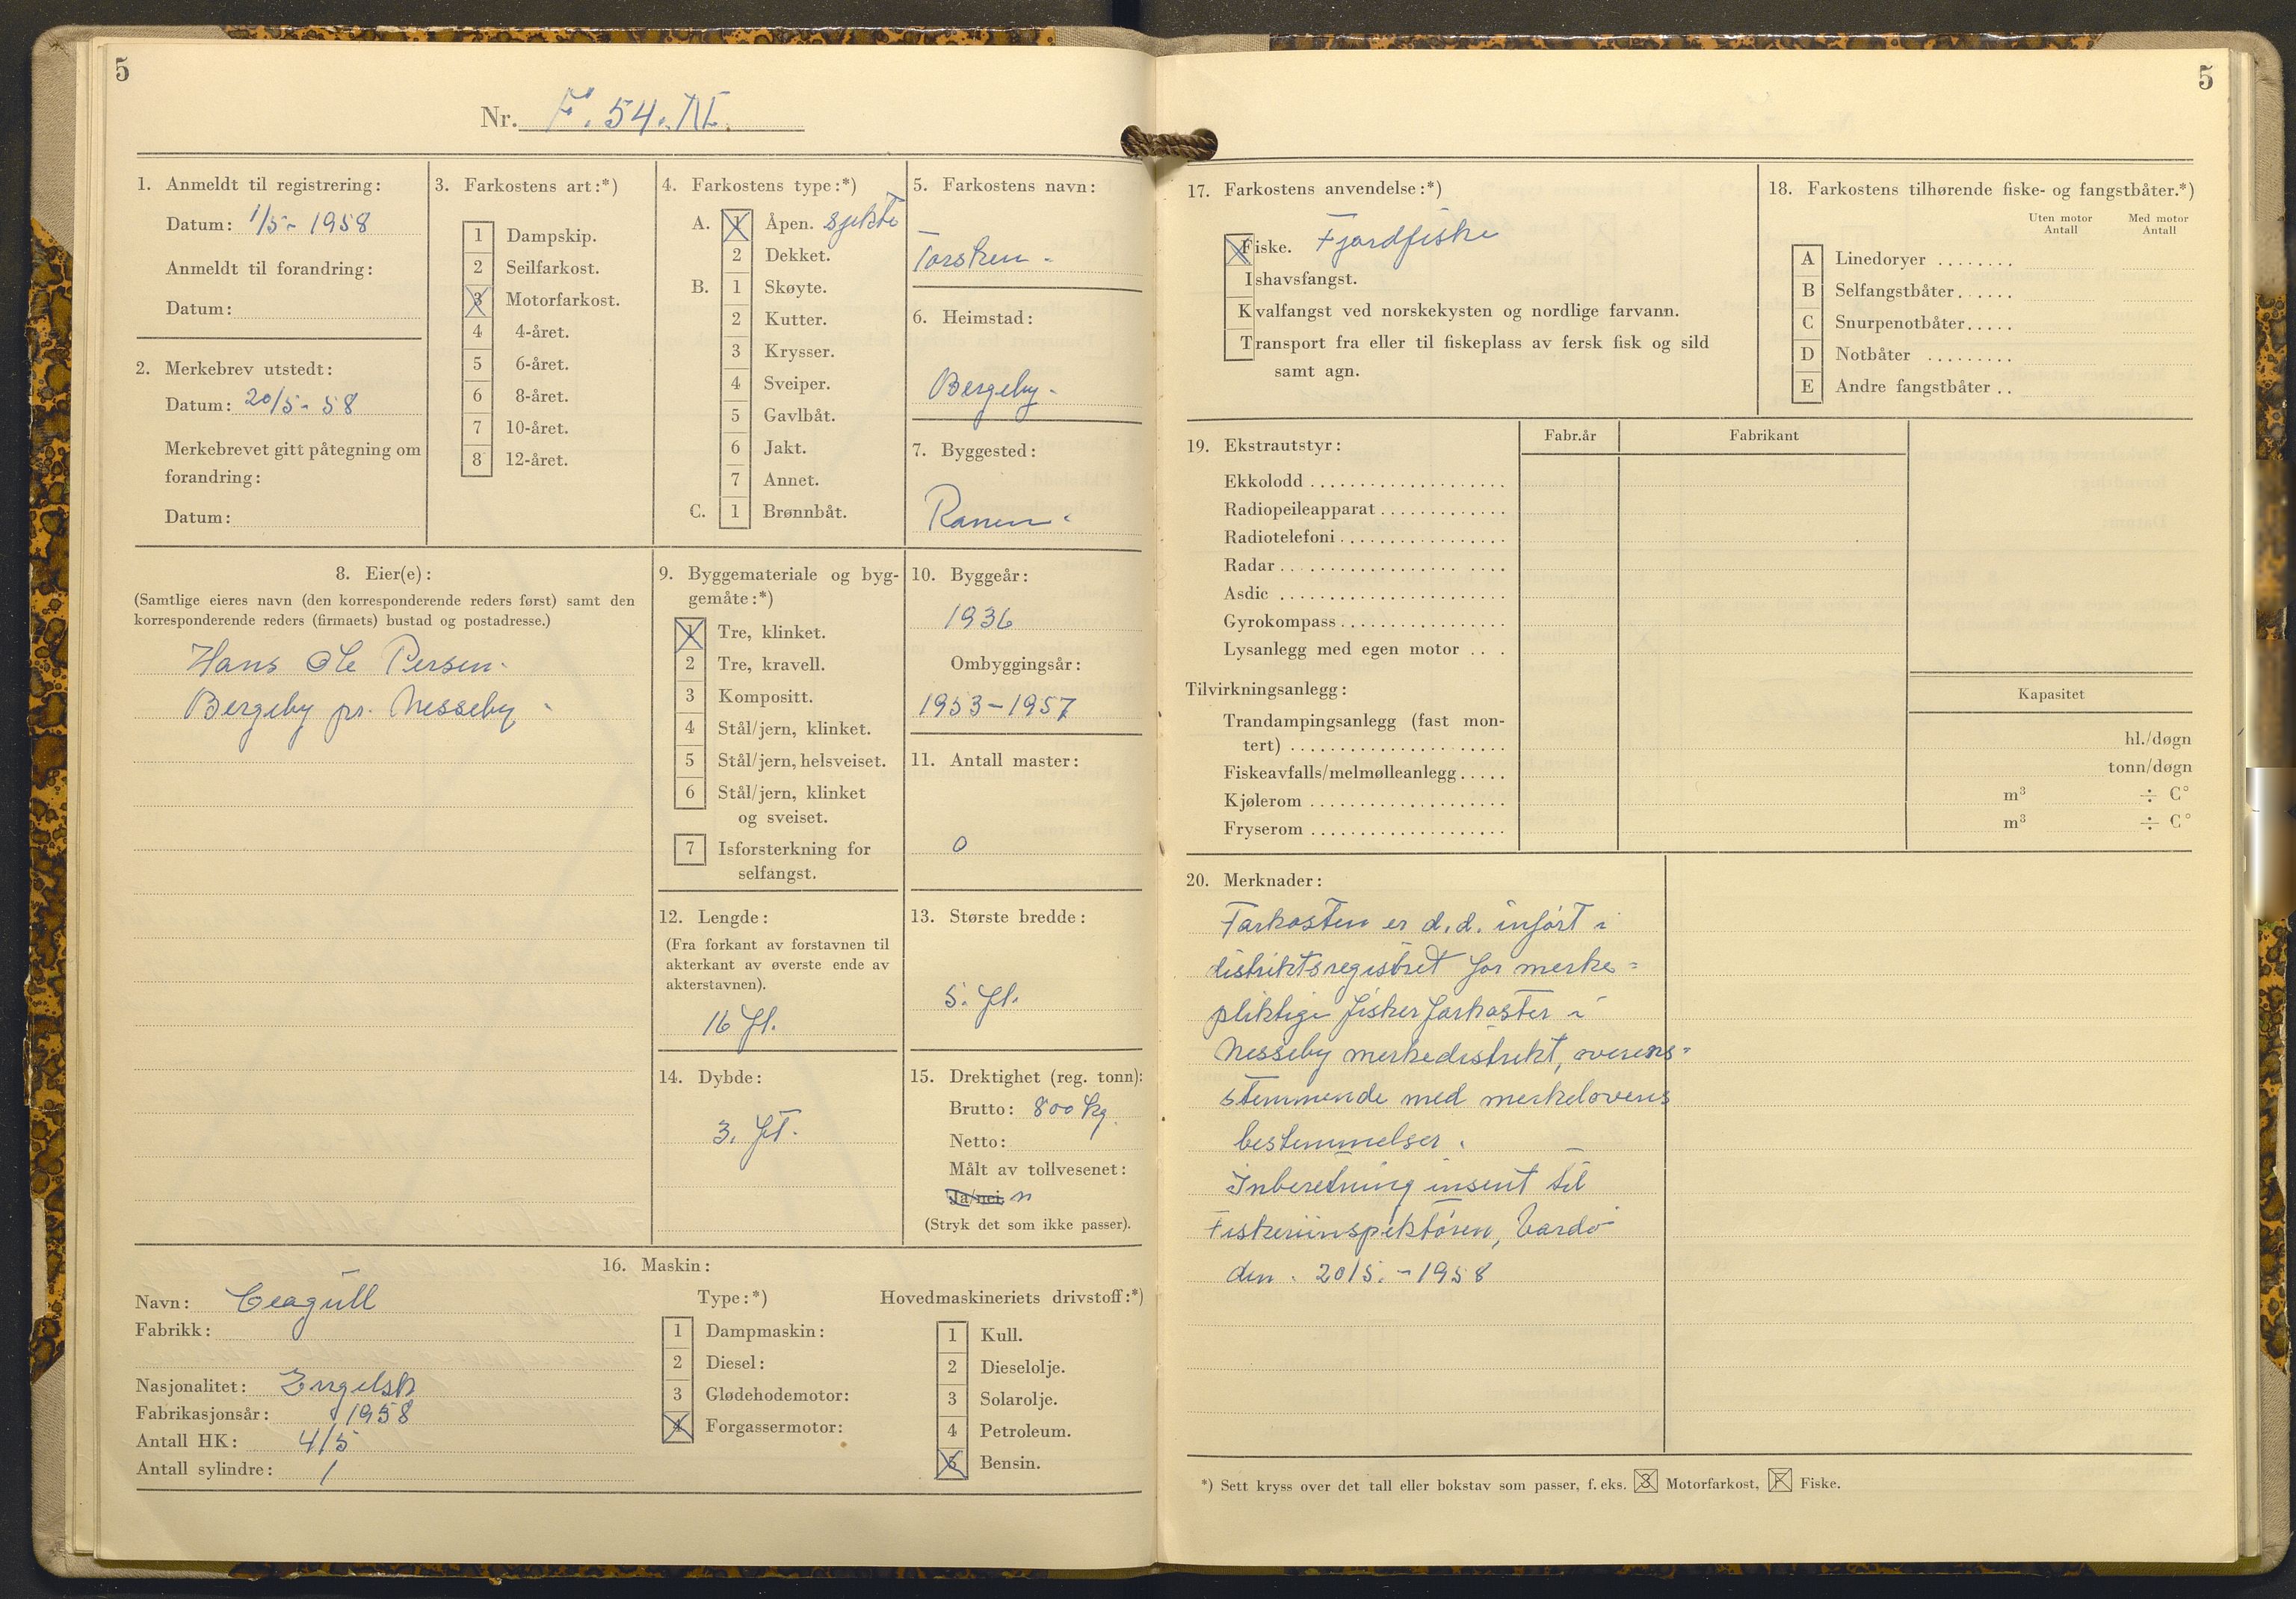 5
Nr. F. 54. N.
1. Anmeldt til registrering:
Datum: 1/5- 1958
Anmeldt til forandring:
Datum:
2. Merkebrev utstedt:
Datum: 20/5- 58
Merkebrevet gitt påtegning om
forandring:
Datum:
3. Farkostens art:*)
1 Dampskip.
2 Seilfarkost.
3 Motorfarkost.
4 4-året.
5 6-året.
6 8-året.
7 10-året.
8 12-året.
4. Farkostens type:*)
A. 1 Åpen. Sjekte
2 Dekket.
B. 1 Skøyte.
2 Kutter.
3 Krysser.
4 Sveiper.
5 Gavlbåt.
6 Jakt.
7 Annet.
C. 1 Brønnbåt.
5. Farkostens navn:
Torsken -
6. Heimstad:
Bergeby -
7. Byggested:
Ranen -
8. Eier(e):
(Samtlige eieres navn (den korresponderende reders først) samt den
korresponderende reders (firmaets) bustad og postadresse.)
Hans Ole Persen -
Bergeby pr. Nesseby -
9. Byggemateriale og byg-
gemåte:*)
1 Tre, klinket.
2 Tre, kravell.
3 Kompositt.
4 Stål/jern, klinket.
5 Stål/jern, helsveiset.
6 Stål/jern, klinket
og sveiset.
7 Isforsterkning for
selfangst.
10. Byggeår:
1936
Ombyggingsår:
1953-1957
11. Antall master:
0
12. Lengde:
(Fra forkant av forstavnen til
akterkant av øverste ende av
akterstavnen).
16 ft.
13. Største bredde:
5. ft.
14. Dybde:
3. ft.
15. Drektighet (reg. tonn):
Brutto: 800 kg.
Netto:
Målt av tollvesenet:
Ja/nei. n
(Stryk det som ikke passer).
16. Maskin:
Navn: Ceagull
Fabrikk:
Nasjonalitet: Engelsk
Fabrikasjonsår: 1958
Antall HK: 4/5
Antall sylindre: 1
Type:*)
1 Dampmaskin:
2 Diesel:
3 Glødehodemotor:
4 Forgassermotor:
Hovedmaskineriets drivstoff:*)
1 Kull.
2 Dieselolje.
3 Solarolje.
4 Petroleum.
5 Bensin.
5
17. Farkostens anvendelse:*)
Fiske. Fjordfiske
Ishavsfangst.
Kvalfangst ved norskekysten og nordlige farvann.
Transport fra eller til fiskeplass av fersk fisk og sild
samt agn.
18. Farkostens tilhørende fiske- og fangstbåter.*)
Uten motor Med motor
Antall Antall
A Linedoryer ........
B Selfangstbåter......
C Snurpenotbåter.....
D Notbåter .........
E Andre fangstbåter ..
19. Ekstrautstyr:
Fabr.år Fabrikant
Ekkolodd ....................
Radiopeileapparat .............
Radiotelefoni .................
Radar ... .... ....
Asdic .......................
Gyrokompass .................
Lysanlegg med egen motor .. .
Tilvirkningsanlegg:
Kapasitet
Trandampingsanlegg (fast mon-
tert) ...................... hl./døgn
Fiskeavfalls/melmølleanlegg ..... tonn/døgn
Kjølerom .................... m³ ÷ C°
Fryserom .................... m³ ÷ C°
20. Merknader:
Farkosten er d.d. inført i
distriktsregistret for merke=
pliktige fiskerfarkoster i
Nesseby merkedistrikt, overens=
stemmende med merkelovens
bestemmelser.
Inberetning insent til
Fiskeriinspektøren, Vardø
den. 20/5.-1958
*) Sett kryss over det tall eller bokstav som passer, f. eks. 3 Motorfarkost, F Fiske.